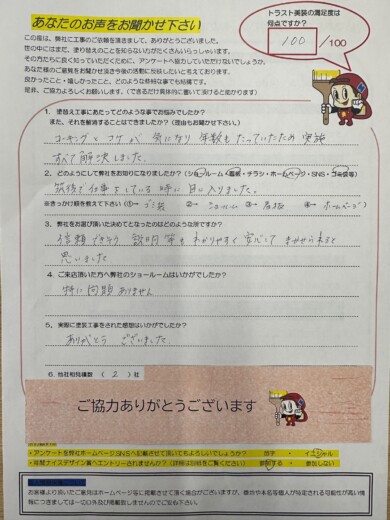 あなたのお声をお聞かせ下さい
この度は、弊社に工事のご依頼を頂きまして、ありがとうございました。
世の中にはまだ、塗り替えのことを知らない方がたくさんいらっしゃいます。
その方たちに良く知っていただくために、アンケートへ協力していただけないでしょうか。
あなた様のご意見をお聞かせ頂き今後の活動に反映したいと考えております。
良かったこと・嬉しかったこと、どのような些細な事でも結構です。
是非、ご協力よろしくお願いします。(できるだけ具体的に書いて頂けると助かります)
トラスト美装の満足度は
何点ですか?
100 /100
1. 塗替え工事にあたってどのような事でお悩みでしたか?
また、それを解消することはできましたか?(理由もお聞かせ下さい)
コーキングとコケが気になり年数もたっていたため実施
すべて解決しました。
2. どのようにして弊社をお知りになりましたか?(ショールーム・看板・チラシ・ホームページ・SNS・ゴミ袋等)
筑後で仕事をしている時に目に入りました。
※きっかけ順を教えて下さい (①→ ゴミ袋 ②→ ショールーム ③→ 看板 ④→ ホームページ)
3. 弊社をお選び頂いた決めてとなったのはどのような所ですか?
信頼できそう 説明等もわかりやすく安心して まかせられると
思いました
4. ご来店頂いた方へ弊社のショールームはいかがでしたか?
特に問題ありません
5、実際に塗装工事をされた感想はいかがでしたか?
ありがとうございました。
6. 他社相見積数 ( 2 )社
ご協力ありがとうございます
・アンケートを弊社ホームページ,SNSへ記載させて頂いてもよろしいでしょうか? 苗字 ・ イニシャル
・年間ナイスデザイン賞へエントリーされませんか?(詳細は別紙をご覧ください) 参加する ・ 参加しない
お客様より頂いたご意見はホームページ等に掲載させて頂く場合がございますが、個人や本名等個人が特定される可能性が高い情
報につきましては一切口外及び掲載致しませんのでご安心下さい。